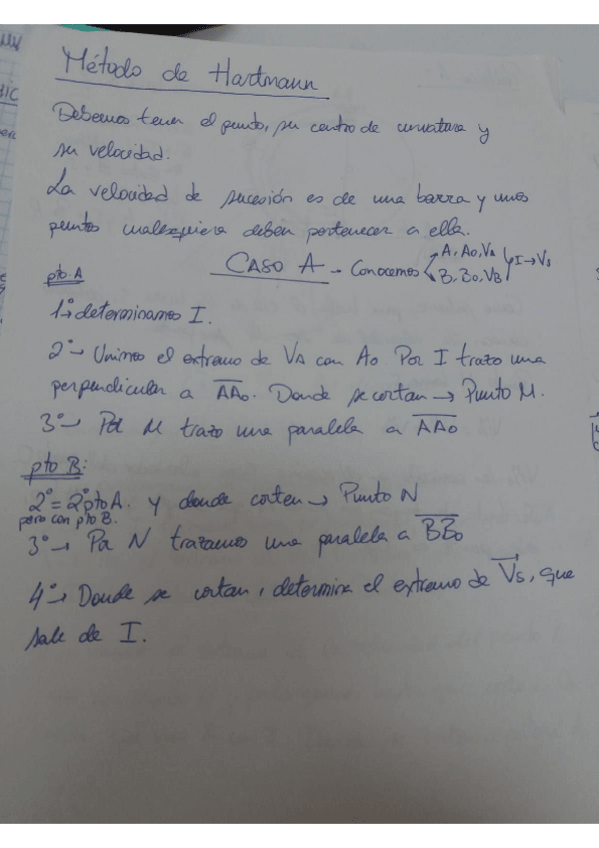 Método de Hartmann
Debemos tener el punto, su centro de curvatura y
su velocidad.
La velocidad de sucesión es de una barra y unos
puntos cualesquiera deben pertenecer a ella.
CASO A - Conocemos A, A0, VA I → Vs
B, B0, VB
pto A
1º → determinamos I.
2º → Unimos el extremo de VA con A0 Por I trazo una
perpendicular a AA0. Donde se cortan → Punto M.
3º → Por M trazo una paralela a AA0
pto B:
2º = 2º pto A. y donde corten → Punto N
pero con pto B.
3º → Por N trazamos una paralela a BB0
4º → Donde se cortan, determina el extremo de Vs, que
sale de I.